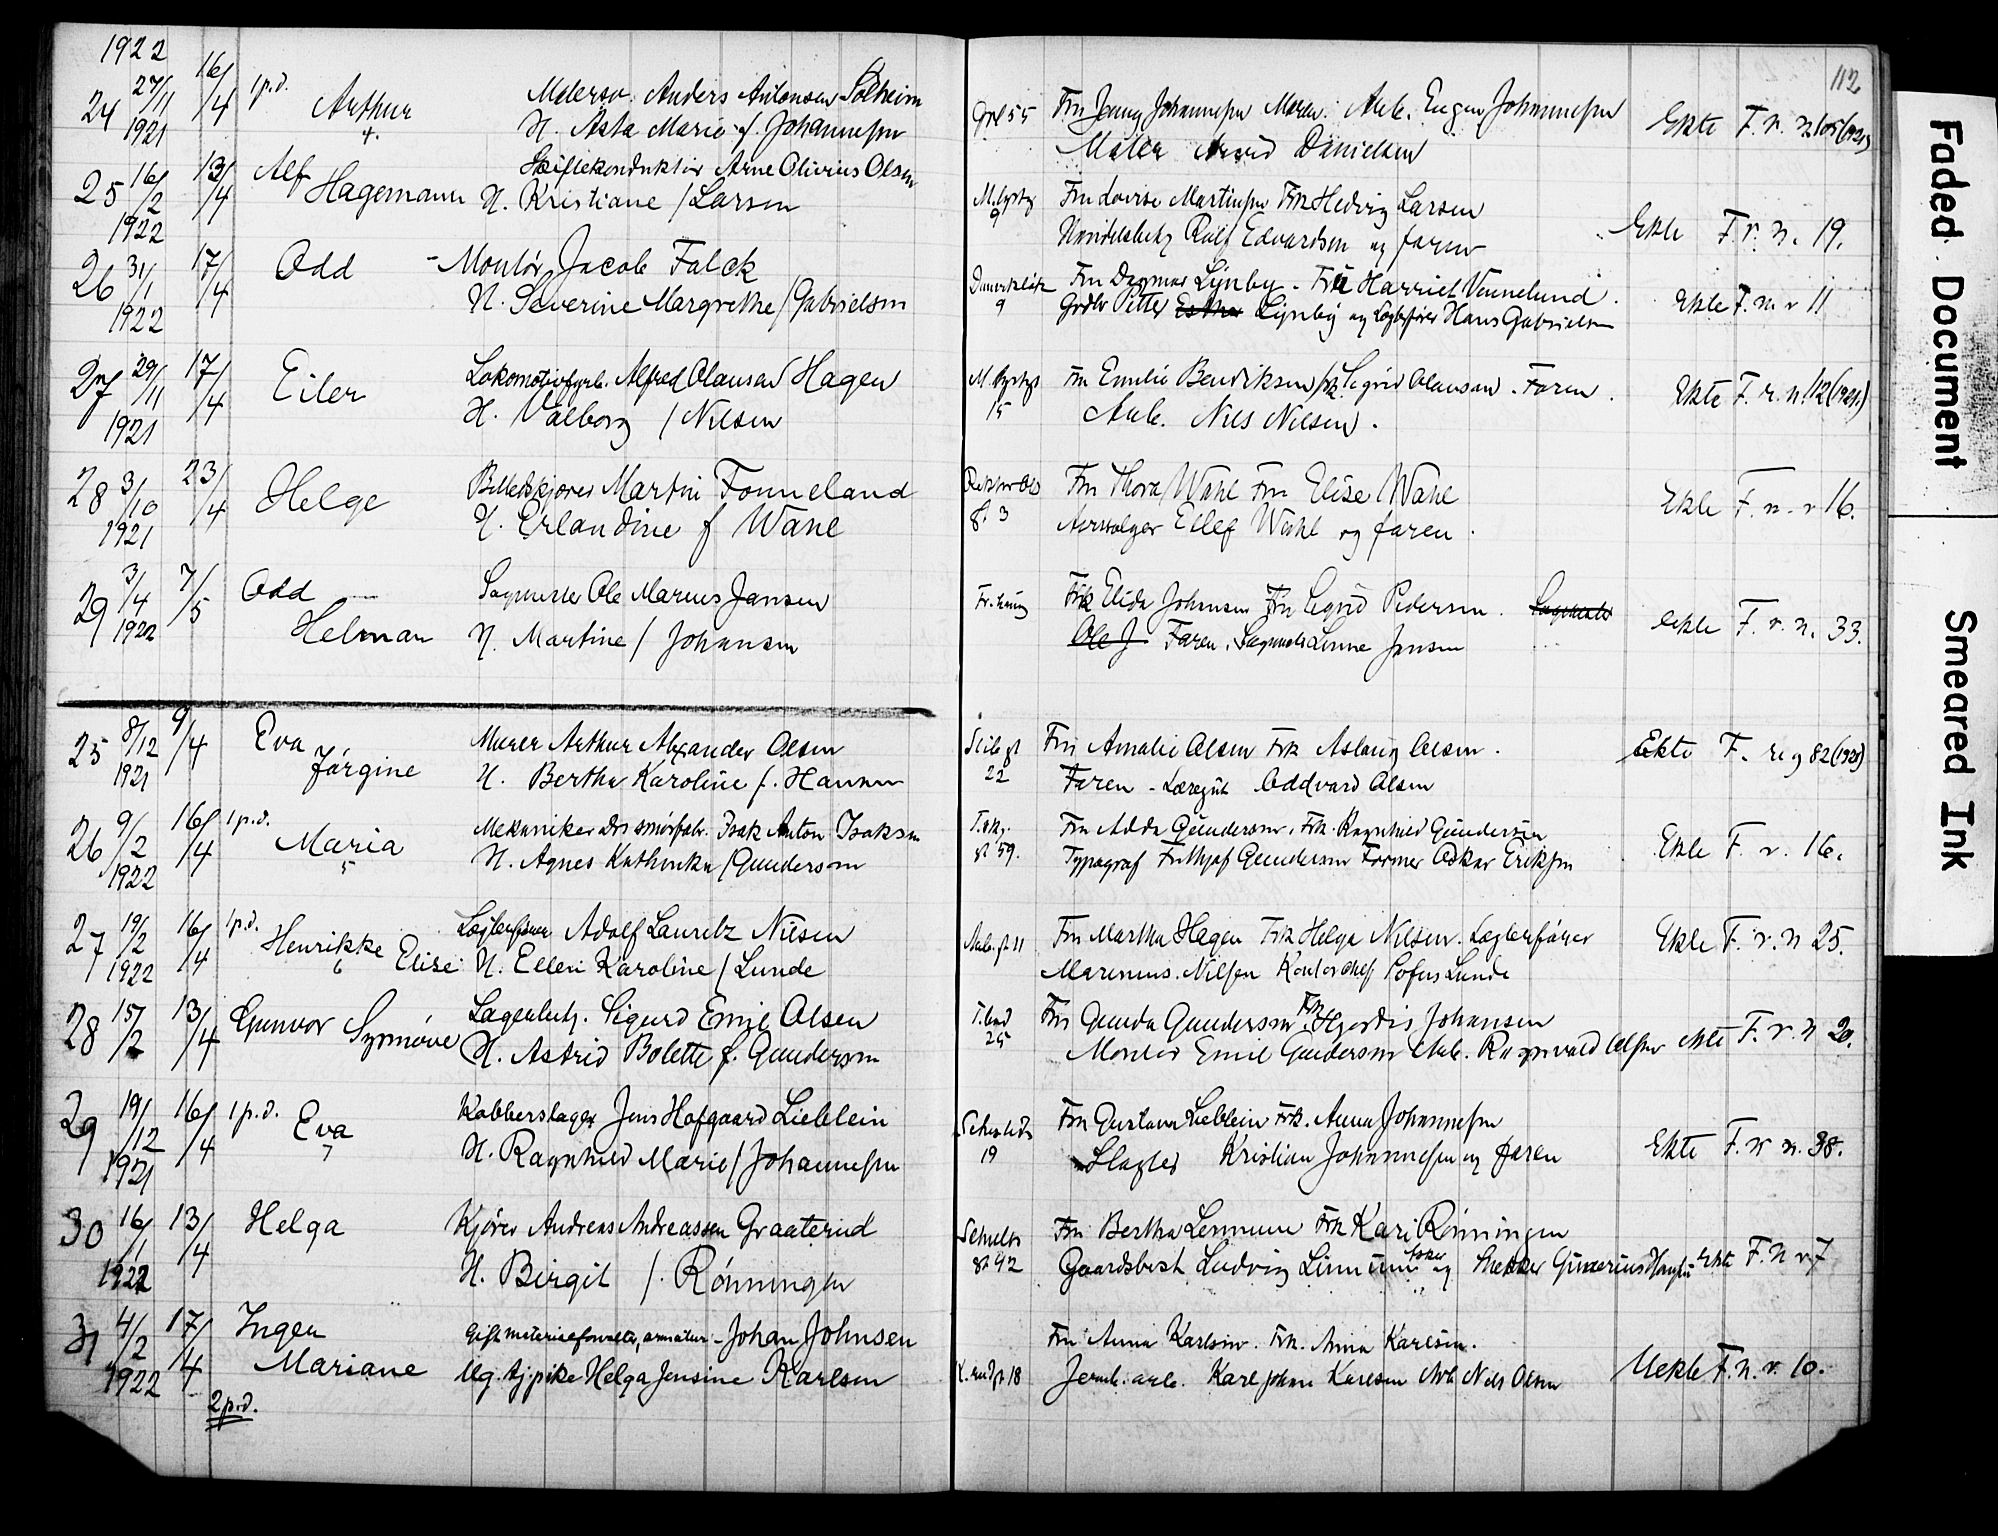 1922
112
24 27/11 1921 16/4 1 p.d. Arthur 4.
Malersv. Anders Antonsen Solheim
H. Asta Marie f. Johannesen
Fru Jenny Johannesen Arb. Eugen Johannesen
Maler Danielsen
Ekte F. r. n 105 (1921)
25 16/2 1922 13/4 Alf Hagemann
Skiftekonduktör Arne Olivius Olsen
H. Kristiane f Larsen
9
Fru Lovise Martinsen Frk Hedvig Larsen
Handelsbetj Rolf Edvardsen og faren
Ekte F. r. n. 19.
26 31/1 1922 17/4 Odd
Montör Jacob Falck
H. Severine Margrethe f Gabrielsen
9
Fru Dagmar Lynby - Fru Harriet Vennelund.
Petter Esther Lynby og Hans Gabrielsen
Ekte F. n. r 11
27 29/11 1921 17/4 Eiler
Lokomotivfyrb. Alfred Olausen Hagen
H. Valborg f Nilsen
15
Fru Emilie Bendiksen Frk. Sigrid Olausen. Faren.
Arb. Nils Nilsen.
Ekte F. r. n. 112 (1921.)
28 3/10 1921 23/4 Helge
Martin Fonneland
H. Erlandine f Wahl
gt. 3
Fru Thora Wahl Fru Elise Wahl
Ellef Wahl og faren.
Ekte F. n. r 16.
29 3/4 1922 7/5 Odd Helman
Sagmester Ole Marius Jansen
H. Martine f Johansen
Frk Elida Johansen Fru Sigrid Pedersen. Sagmester
Ole J Faren. Jansen
Ekte F. r. n. 33.
25 8/12 1921 9/4 Eva Jörgine
Murer Arthur Alexander Olsen
H. Bertha Karoline f. Hansen
22
Fru Amalie Olsen Frk Aslaug Olsen.
Faren - Læregut Oddvard Olsen
Ekte F. reg 82 (1921)
26 9/2 1922 16/4 1 p.d. Maria 5
Mekaniker Isak Anton Isaksen
H. Agnes Kathinka f Gundersen
gt 59.
Fru Adda Gundersen. Frk. Ragnhild Gundersen
Typograf Frithjof Gundersen Former Oskar Eriksen
Ekte F. r. 16.
27 19/2 1922 16/4 1 p.d. Henrikke Elise 6
Lægterfører Adolf Lauritz Nilsen
H. Ellen Karoline f Lunde
gt 11
Fru Martha Hagen Frk Helga Nilsen. Lægterfører
Marenius Nilsen Kontorchef Sofus Lunde
Ekte F. r. n 25.
28 15/2 13/4 Gunvor Synnöve
Lagerbetj. Sigurd Emil Olsen
H. Astrid Bolette f. Gundersen
25
Fru Gunda Gundersen Frk Hjördis Johansen
Montör Emil Gundersen Arb. Ragnvald Olsen
ekte F. r. n 20.
29 19/12 1921 16/4 1 p.d. Eva 7
Kobberslager Jens Hofgaard Lieblein
H. Ragnhild Marie f Johannesen
19
Fru Gustava Lieblein Frk. Anna Johannesen
Slagter Kristian Johannesen og faren
Ekte F. r n. 38.
30 16/1 1922 13/4 Helga
Kjörer Andreas Andreassen Graaterud
H. Birgit f. Rönningen
gt 92
Fru Bertha Lennum Frk Kari Rönningen
Gaardsbest Ludvig og Snekker
Ekte F. N r 7
31 4/2 1922 17/4 Inger Mariane
2 p.d.
Gift - Johan Johnsen
Ug. tj.pike Helga Jensine Karlsen
18
Fru Anna Karlsen. Frk. Anna Karlsen.
Jernb. arb. Karl Johan Karlsen Arb Nels Olsen
Uekte F. n. r. 10.
Faded Document
Smeared Ink